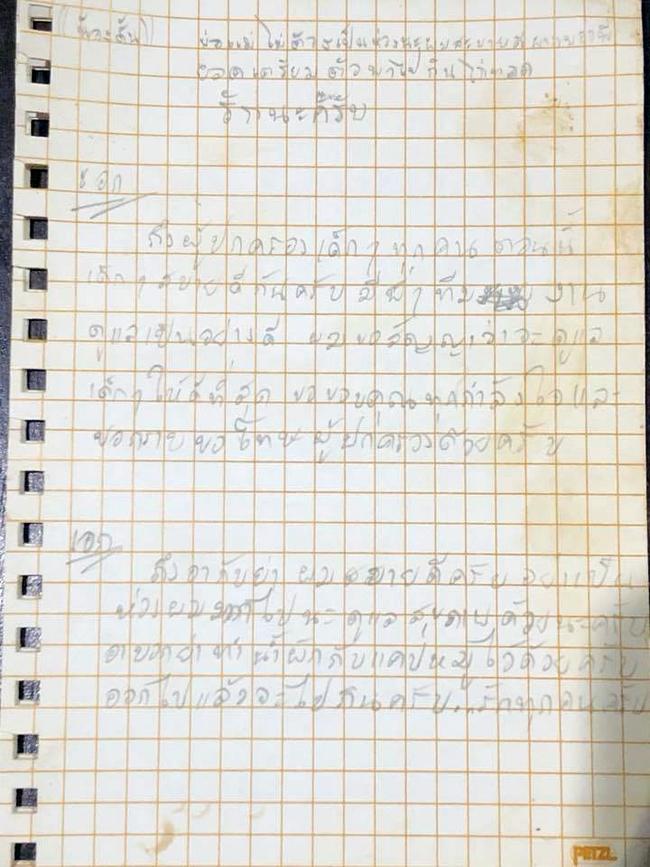 (น้องตั้น)
พ่อแม่ ไม่ต้องเป็นห่วงนะ ผมสบายดี
ยอด เตรียม ตัว พาไป กิน ไก่ทอด
ด้วย
รักนะครับ
เอก
ถึงผู้ปกครองเด็กๆ ทุกคน ตอนนี้
เด็กๆ สบายดีกันครับ มีพี่ๆ ทีม งาน
ดูแลเป็นอย่างดี ผมขอสัญญาว่าจะดูแล
เด็กๆ ให้ดีที่สุด ขอขอบคุณทุกกำลังใจและ
ขอกราบขอโทษผู้ปกครองด้วยครับ
เอก
ถึงอากับย่า ผมสบายดีครับ อย่าเป็น
ห่วงผมมากไปนะ ดูแลสุขภาพด้วยนะครับ
อาบอกย่าทำน้ำผักกับแคปหมูไว้ด้วยครับ
ออกไปแล้วจะไปกินครับ..รักทุกคนครับ
PETZL